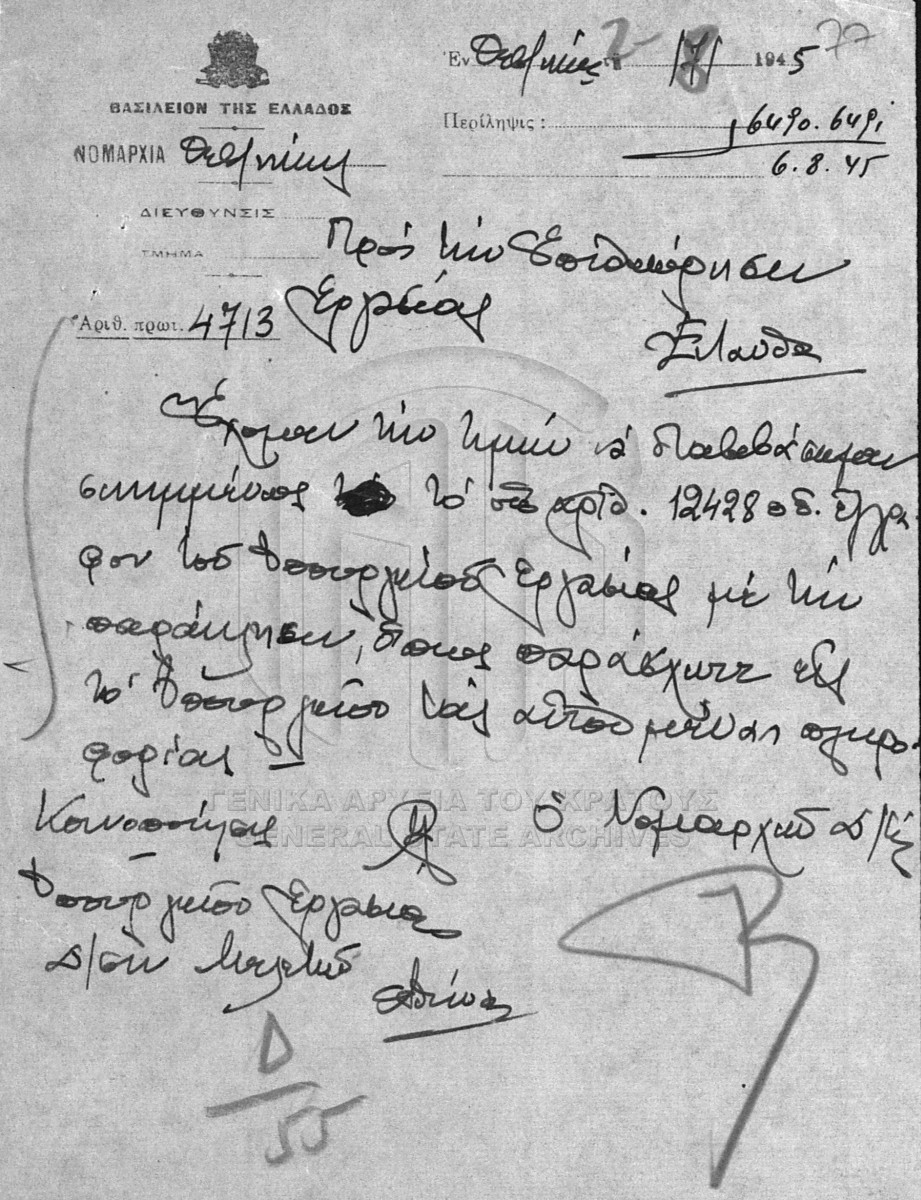 77
Ἐν Θεσ/νίκῃ τῇ 2-8 1945
ΒΑΣΙΛΕΙΟΝ ΤΗΣ ΕΛΛΑΔΟΣ
Περίληψις : 6490. 6491
6.8.45
ΝΟΜΑΡΧΙΑ Θεσ/νίκης
ΔΙΕΥΘΥΝΣΙΣ
ΤΜΗΜΑ
Πρὸς τὴν Ἐπιθεώρησιν
Ἐργασίας
Ἀριθ. πρωτ. 4713
Ἐνταῦθα
Ἔχομεν τὴν τιμὴν νὰ διαβιβάσωμεν
συνημμένως τὸ ὑπ' ἀριθ. 12428 ἔγγρα-
φον τοῦ Ὑπουργείου Ἐργασίας μὲ τὴν
παράκλησιν, ὅπως παράσχητε εἰς
τὸ Ὑπουργεῖον τὰς αἰτουμένας πληρο-
φορίας –
ΓΕΝΙΚΑ ΑΡΧΕΙΑ ΤΟΥ ΚΡΑΤΟΥΣ
GENERAL STATE ARCHIVES
Κοινοποίησις
Ὁ Νομάρχης
Ὑπουργεῖον Ἐργασίας
Δ/σιν
Ἀθήνας
Δ
55